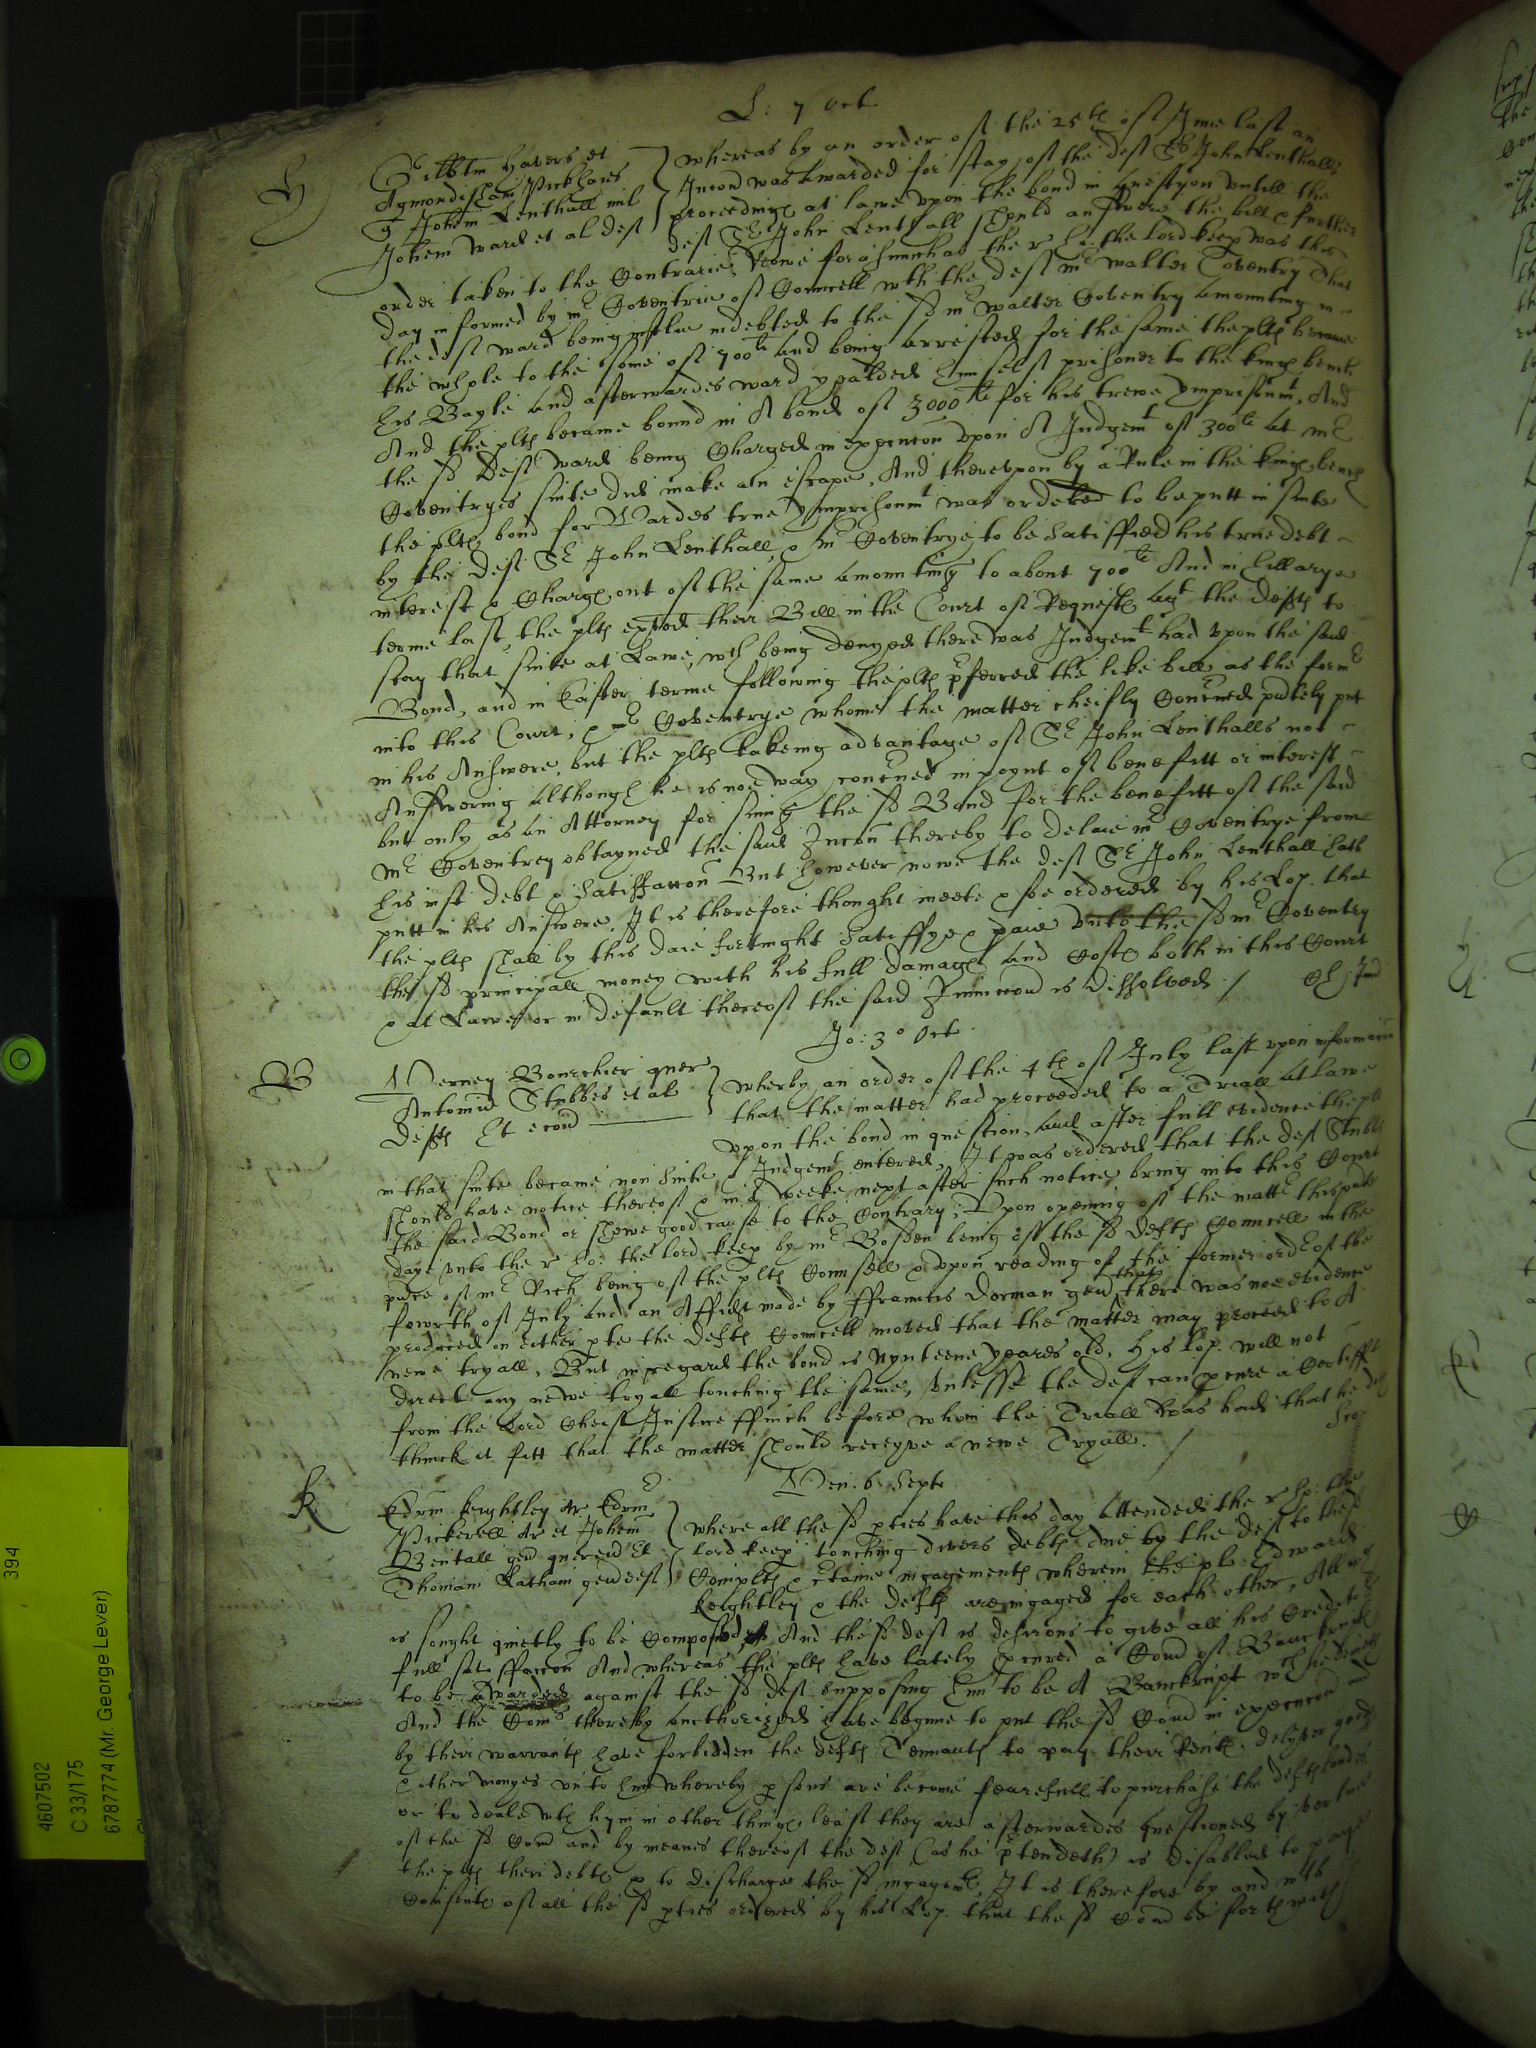 L: 7 Oct
H
Gilbtm Havers et
Agmondisham Pickhaies
q Johem Lenthall mil
Johem Ward et al deft
whereas by an order of the 25th of June last an
Iniuncon was awarded for stay of the deft Sr John Lenthalls
proceedings at lawe upon the bond in question untill the
deft Sr John Lenthall should answere the bill & further
order taken to the Contrarie, Nowe forasmuch as the r ho: the lord keep was this
day informed by mr Coventrie of Councell wth the deft mr walter Coventry That
the deft ward being iustlie indebted to the sd mr walter Coventry amounting in
the whole to the some of 700li and being arrested for the same the plts became
his Bayle and afterwardes ward yealded himself prisoner to the kings bench
And the plts became bound in A bond of 3000li for his trewe ymprisonmt, And
the sd Deft ward being Charged in execucon upon A Judgemt of 300li at mr
Coventryes suite did make an escape, And thereupon by a Rule in the kings bench
the plts bond for Wardes true ymprisonmt was ordered to be putt in suite
by the deft Sr John Lenthall, & mr Coventrye to be satisffied his true debt
interest & Charges out of the same amounting to about 700li And in hillarye
terme last, the plts exhibted their Bill in the Court of Requests agt the defts to
stay that suite at Lawe, wch being denyed there was Judgemt had upon the said
Bond, and in Easter terme following the plts pferred the like bill as the formr
into this Court, & mr Coventrye whome the matter cheifly Concrned pntely put
in his Answere, but the plts takeing advantage of Sr John Lenthalls not
Answering although he is noe way concrned in poynt of benefitt or interest
but only as an Attorney for suing the sd Bond for the benefitt of the said
mr Coventrey obtayned the said Iniuncon thereby to delaie mr Coventrye from
his iust debt & satisfaccon But however nowe the deft Sr John Lenthall hath
putt in his Answere, It is therefore thought meete & soe ordered by his Lop. that
the plts shall by this daie fortnight satisffye & paie unto the sd mr Coventry
the sd principall money with his full damages and Costs both in this Court
& at Lawe, or in default thereof the said Iniunccon is dissolved /
Jo: 3o Oct
B
Verney Bourchier quer
Antomu Stubbes et al
defts Et econ
wherby an order of the 4th of July last upon informacon
that the matter had proceeded to a Triall at lawe
upon the bond in question, and after full evidence the plt
in that suite became non suite, & Judgemt entered, It was ordered that the deft Stubbs
should have notice thereof & in a weeke next after such notice bring into this Court
the said Bond or shewe good cause to the Contrary; Upon opening of the mattr this pnte
daye unto the r ho: the lord keep by mr Bosden being of the sd defts Councell in the
pnce of mr Rich being of the plts Counsell & upon reading of the former ordr of the
fowrth of July and an Affidt made by Ffrauncis Dorman gen that there was noe evidence
produced on either pte the defts Councell moved that the matter may proceed to A
newe tryall, But in regard the bond is Nynteene yeares old, his Lop. will not
direct any newe tryall touching the same, unlesse the deft can pcure a Certifft
from the Lord Cheife Justice ffinch before whom the Triall was had that he doth
thinck it fitt that the matter should receyve a newe Tryall. /
Ven. 6 Sept
K
Edrm keightley Ar Edrm
Pickerell Ar et Johem
Bentall gen querend Et
Thomam Latham gen deft
where all the sd pties have this day attended the r ho: the
lord keep touching divers debts due by the deft to the sd
Complts & ctaine ingagements wherein the plt Edward
keightley & the defts are ingaged for eath other, All wch
is sought quietly to be Composed, And the sd deft is desirous to give all his Creditrs
full satisffaccon And whereas the plts have lately pcured a Comn of Banckrupts
to be awarded against the sd deft supposing him to be A Banckrupt wch he denyeth
And the Comrs thereby aucthorized have begune to put the sd Comn in execucon and
by their warrants have forbidden the defts Tennants to pay their Rents, delyver goods
& other monyes unto him whereby psons are become fearefull to purchase the defts landes
or to deale wth hym in other things, least they are afterwardes questioned by vertue
of the sd Comn and by meanes thereof the deft (as he ptendeth) is disabled to paye
the plts their debts & to discharge the sd ingagemts, It is therefore by and wth
Consente of all the sd pties ordered by his Lop. that the sd Comn be forthwith
394
4607502
C 33/175
6787774 (Mr. George Lever)